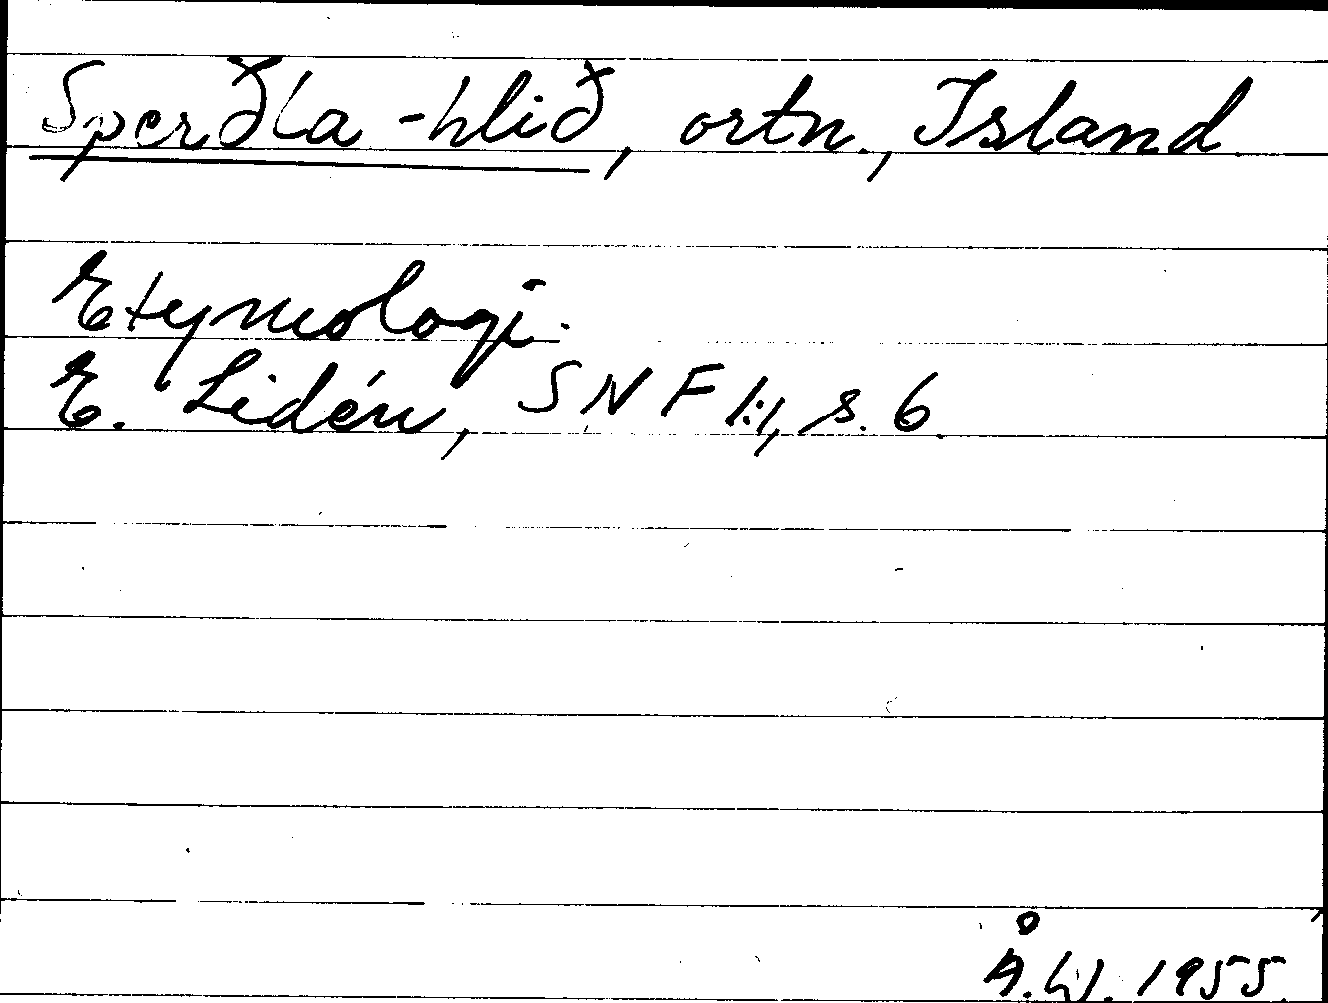 Sperðla-hlið, ortn., Island.
Etymologi.
E. Lidén, SNF 1:1, s. 6.
Å.W. 1955.